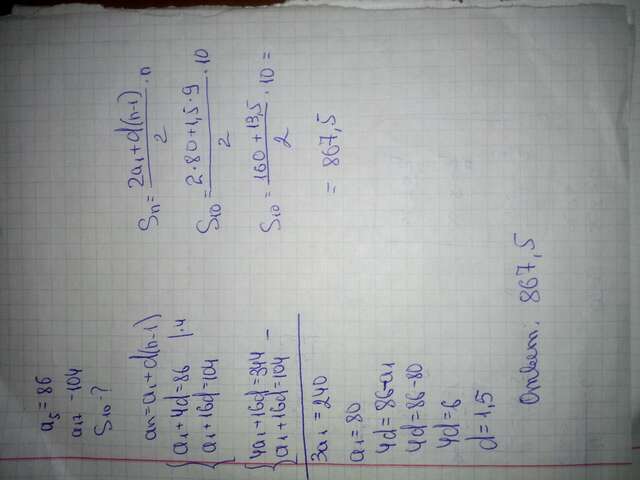 a₅ = 86
a₁₇ - 104
S₁₀ - ?
aₙ = a₁ + d(n-1)
{ a₁ + 4d = 86 | · 4
{ a₁ + 16d = 104
{ 4a₁ + 16d = 344
{ a₁ + 16d = 104 -
3a₁ = 240
a₁ = 80
4d = 86 - a₁
4d = 86 - 80
4d = 6
d = 1,5
Sₙ = (2a₁ + d(n-1))/2 · n
S₁₀ = (2 · 80 + 1,5 · 9)/2 · 10
S₁₀ = (160 + 13,5)/2 · 10 =
= 867,5
Ответ: 867,5